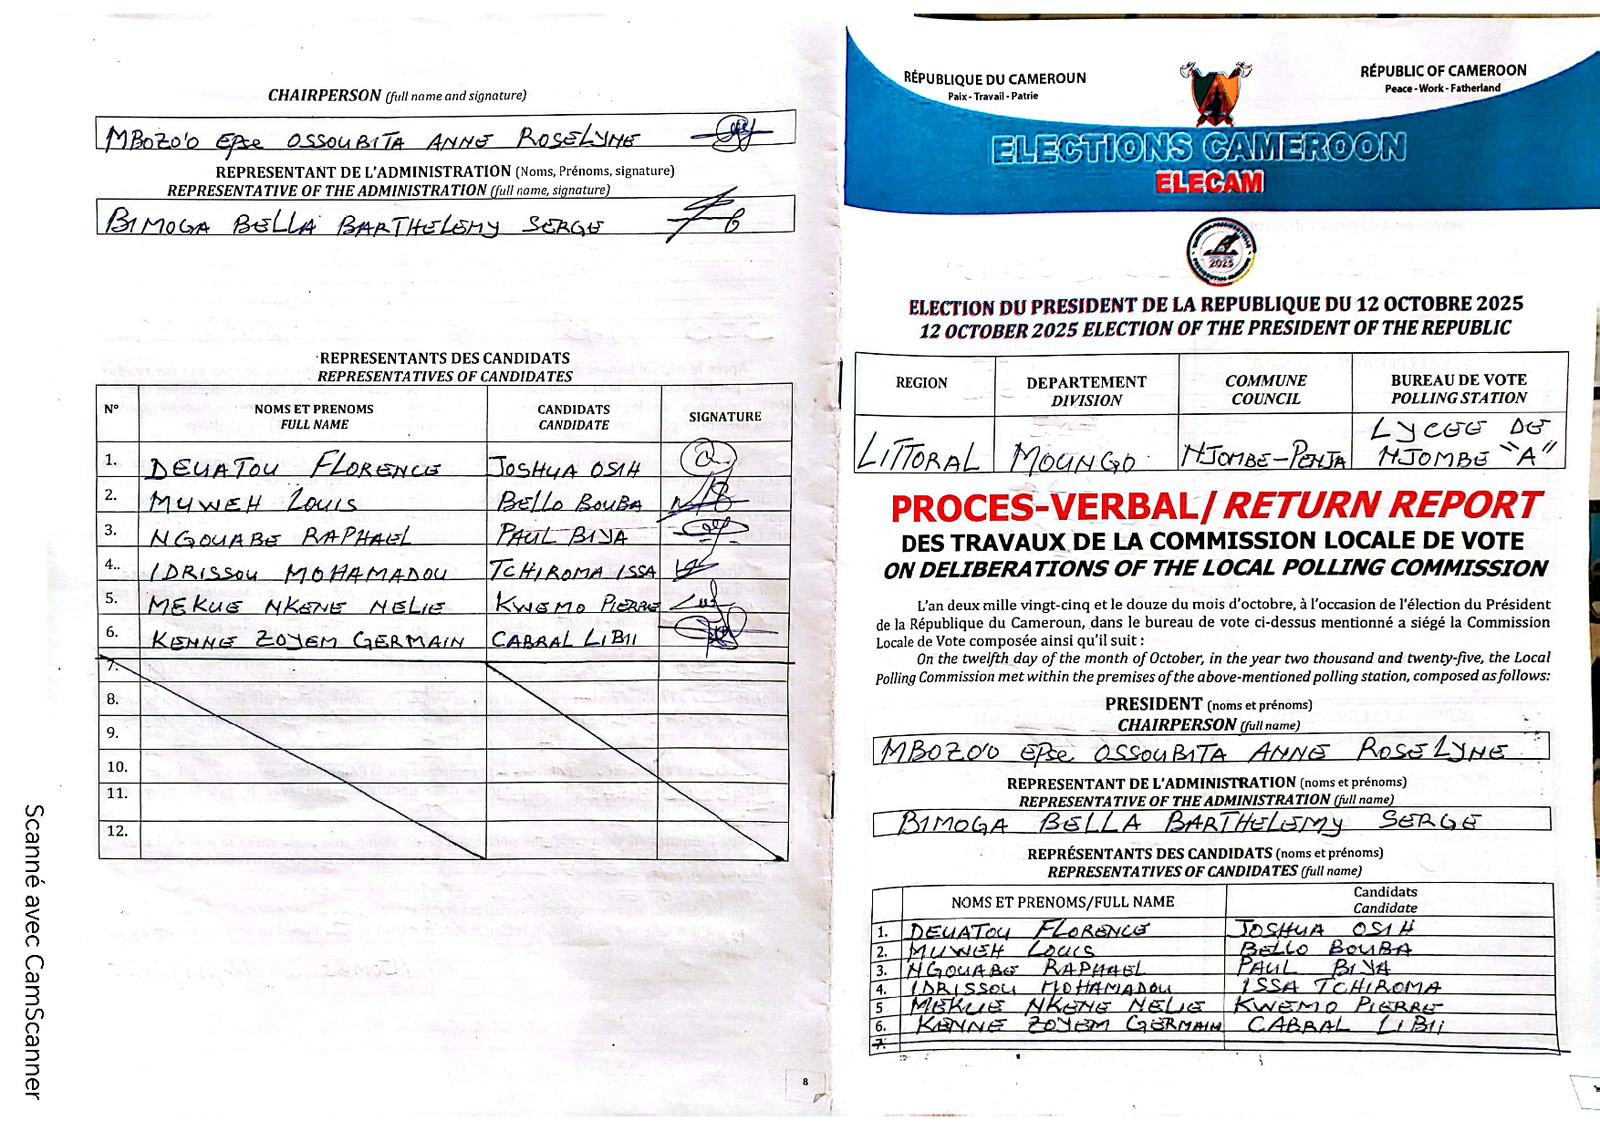 CHAIRPERSON (full name and signature)
MBOZO'O EPSE OSSOUBITA ANNE ROSELYNE
REPRESENTANT DE L'ADMINISTRATION (Noms, Prénoms, signature)
REPRESENTATIVE OF THE ADMINISTRATION (full name, signature)
BIMOGA BELLA BARTHELEMY SERGE
REPRESENTANTS DES CANDIDATS
REPRESENTATIVES OF CANDIDATES
N° NOMS ET PRENOMS CANDIDATS SIGNATURE
FULL NAME CANDIDATE
1. DEUATOU FLORENCE JOSHUA OSIH
2. MUWEH LOUIS BELLO BOUBA
3. NGOUABE RAPHAEL PAUL BIYA
4.. IDRISSOU MOHAMADOU TCHIROMA ISSA
5. MEKUE NKENE NELIE KWEMO PIERRE
6. KENNE ZOYEM GERMAIN CABRAL LIBII
7.
8.
9.
10.
11.
12.
8
Scanné avec CamScanner
RÉPUBLIQUE DU CAMEROUN
Paix - Travail - Patrie
RÉPUBLIC OF CAMEROON
Peace - Work - Fatherland
ELECTIONS CAMEROON
ELECAM
2025
ELECTION DU PRESIDENT DE LA REPUBLIQUE DU 12 OCTOBRE 2025
12 OCTOBER 2025 ELECTION OF THE PRESIDENT OF THE REPUBLIC
REGION DEPARTEMENT COMMUNE BUREAU DE VOTE
DIVISION COUNCIL POLLING STATION
LITTORAL MOUNGO NJOMBE-PENJA LYCEE DE
NJOMBE "A"
PROCES-VERBAL/ RETURN REPORT
DES TRAVAUX DE LA COMMISSION LOCALE DE VOTE
ON DELIBERATIONS OF THE LOCAL POLLING COMMISSION
L'an deux mille vingt-cinq et le douze du mois d'octobre, à l'occasion de l'élection du Président
de la République du Cameroun, dans le bureau de vote ci-dessus mentionné a siégé la Commission
Locale de Vote composée ainsi qu'il suit :
On the twelfth day of the month of October, in the year two thousand and twenty-five, the Local
Polling Commission met within the premises of the above-mentioned polling station, composed as follows:
PRESIDENT (noms et prénoms)
CHAIRPERSON (full name)
MBOZO'O EPSE OSSOUBITA ANNE ROSELYNE
REPRESENTANT DE L'ADMINISTRATION (noms et prénoms)
REPRESENTATIVE OF THE ADMINISTRATION (full name)
BIMOGA BELLA BARTHELEMY SERGE
REPRÉSENTANTS DES CANDIDATS (noms et prénoms)
REPRESENTATIVES OF CANDIDATES (full name)
NOMS ET PRENOMS/FULL NAME Candidats
Candidate
1. DEUATOU FLORENCE JOSHUA OSIH
2. MUWEH LOUIS BELLO BOUBA
3. NGOUABE RAPHAEL PAUL BIYA
4. IDRISSOU MOHAMADOU ISSA TCHIROMA
5 MEKUE NKENE NELIE KWEMO PIERRE
6. KENNE ZOYEM GERMAIN CABRAL LIBII
7.